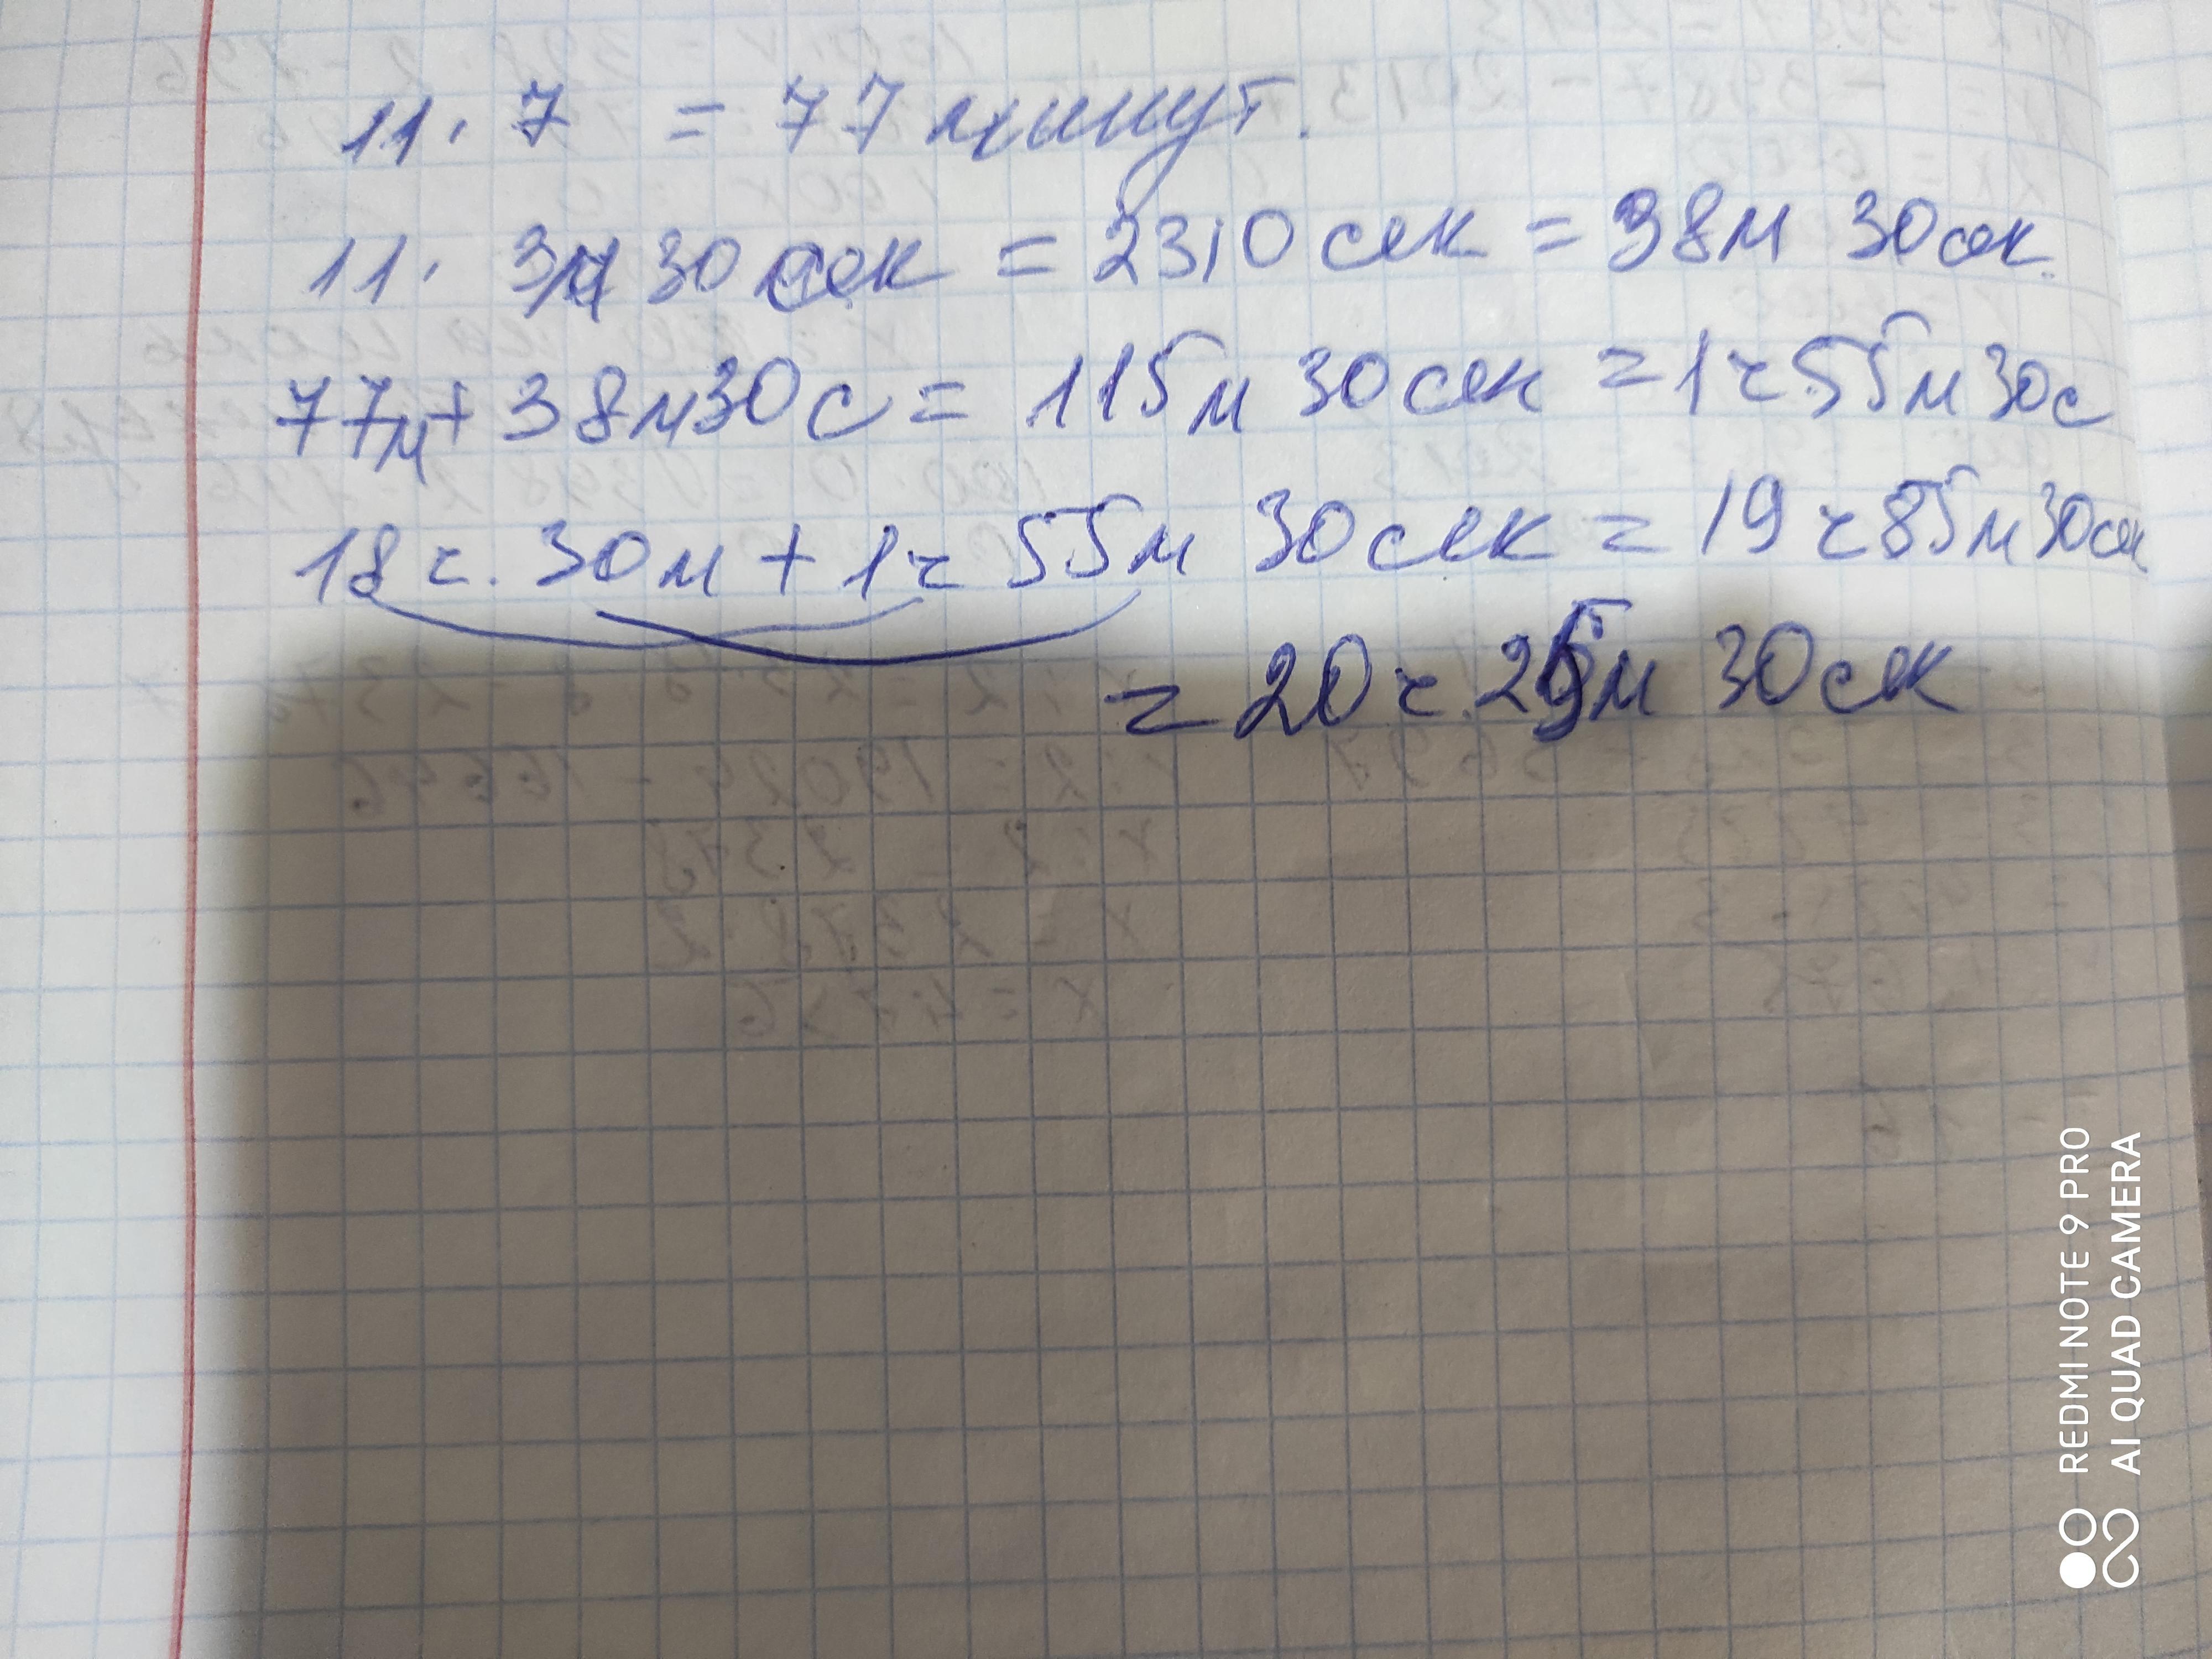 11 · 7 = 77 минут.
11 · 3м 30 сек = 2310 сек = 38м 30 сек.
77м + 38м30с = 115м 30сек = 1ч 55м 30с
18ч. 30м + 1ч 55м 30сек = 19ч 85м 30сек
= 20ч. 25м 30сек
REDMI NOTE 9 PRO
AI QUAD CAMERA